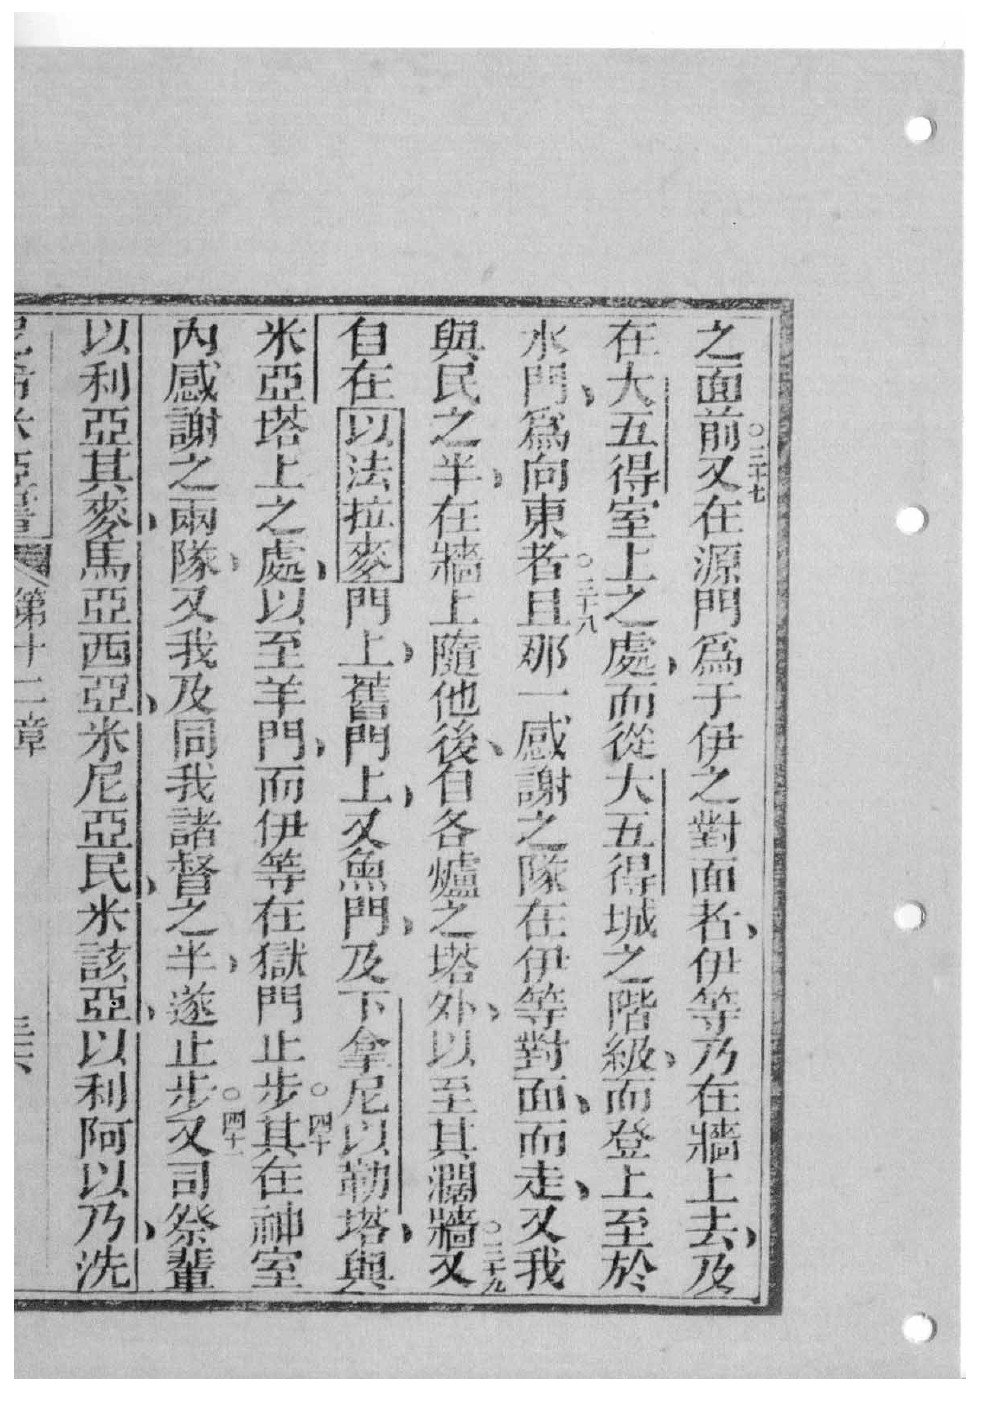 之面前○三十七又在源門爲于伊之對面者伊等乃在牆上去及
在大五得室上之處而從大五得城之階級而登上至於
水門爲向東者○三十八且那一感謝之隊在伊等對面而走又我
與民之半在牆上隨他後自各爐之塔外以至其濶牆○三十九又
自在以法拉麥門上舊門上又魚門及下拿尼以勒塔與
米亞塔上之處以至羊門而伊等在獄門止步○四十其在神室
內感謝之兩隊又我及同我諸督之半遂止步○四十一又司祭輩
以利亞其麥馬亞西亞米尼亞民米該亞以利阿以乃洗
米亞書 第十二章